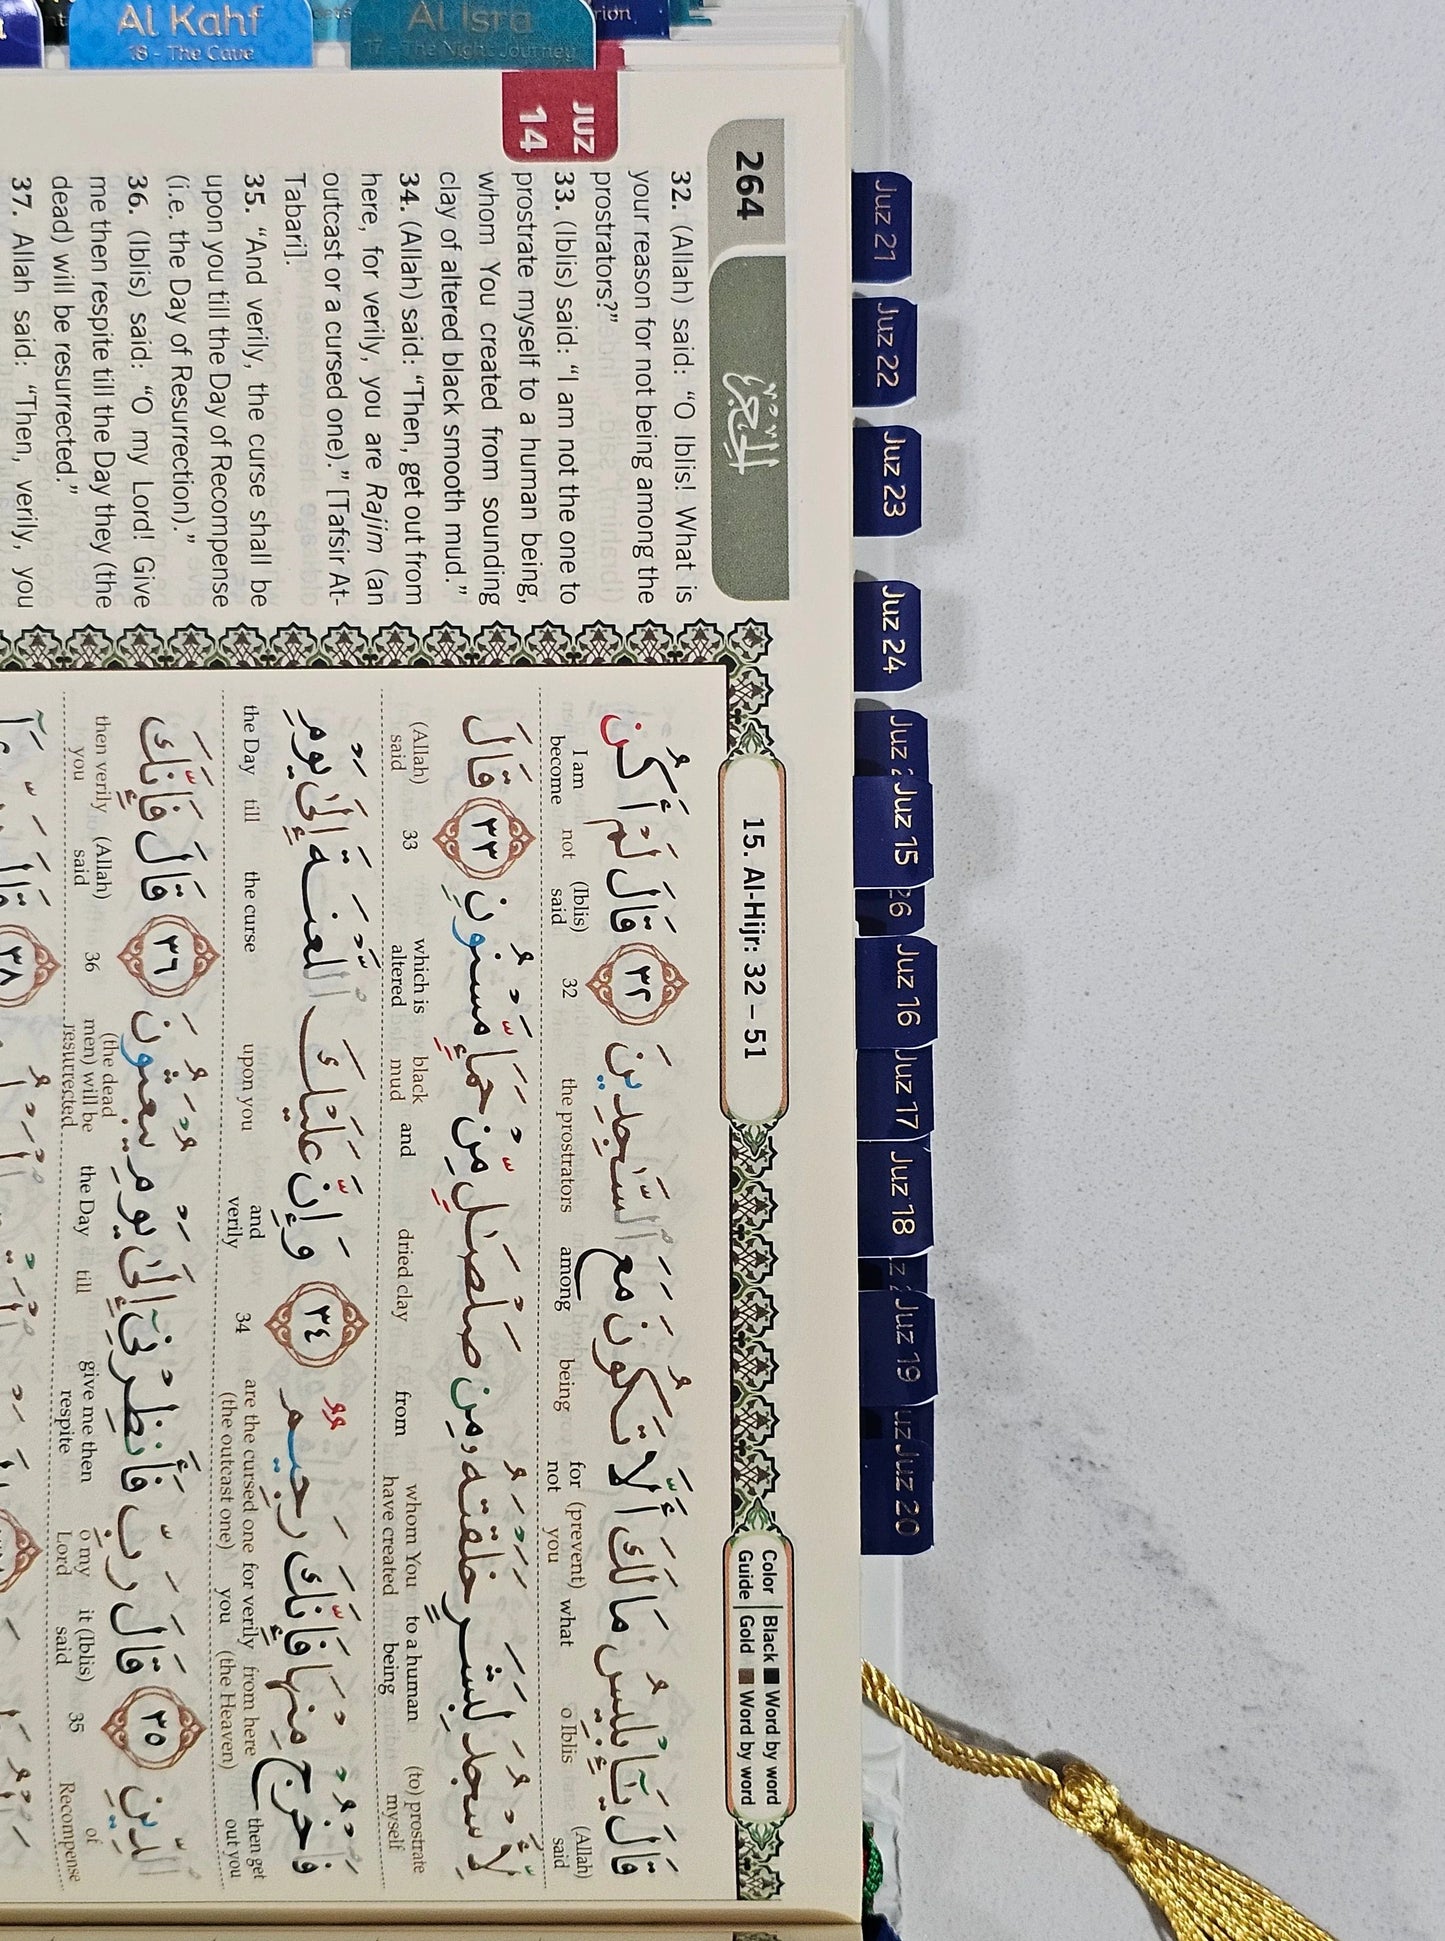 Al Kahf
18 - The Cave
Al Isra
17 - The Night Journey
JUZ
14
264
الحجر
15. Al-Hijr: 32 – 51
Color Guide
Black ■ Word by word
Gold ■ Word by word
32. (Allah) said: “O Iblis! What is
your reason for not being among the
prostrators?”
33. (Iblis) said: “I am not the one to
prostrate myself to a human being,
whom You created from sounding
clay of altered black smooth mud.”
34. (Allah) said: “Then, get out from
here, for verily, you are Rajim (an
outcast or a cursed one).” [Tafsir At-
Tabari].
35. “And verily, the curse shall be
upon you till the Day of Recompense
(i.e. the Day of Resurrection).”
36. (Iblis) said: “O my Lord! Give
me then respite till the Day they (the
dead) will be resurrected.”
37. Allah said: “Then, verily, you
قَالَ يَـٰٓإِبْلِيسُ مَا لَكَ أَلَّا تَكُونَ مَعَ ٱلسَّـٰجِدِينَ ٣٢ قَالَ لَمْ أَكُن
I am become not (Iblis) said 32 the prostrators among being for not (prevent) you what o Iblis (Allah) said
لِّأَسْجُدَ لِبَشَرٍ خَلَقْتَهُۥ مِن صَلْصَـٰلٍ مِّنْ حَمَإٍ مَّسْنُونٍ ٣٣ قَالَ
(Allah) said 33 which is altered black mud and dried clay from whom You have created to a human being (to) prostrate myself
فَٱخْرُجْ مِنْهَا فَإِنَّكَ رَجِيمٌ ٣٤ وَإِنَّ عَلَيْكَ ٱللَّعْنَةَ إِلَىٰ يَوْمِ
the Day till the curse upon you and verily 34 are the cursed one (the outcast one) for verily you from here (the Heaven) then get out you
ٱلدِّينِ ٣٥ قَالَ رَبِّ فَأَنظِرْنِىٓ إِلَىٰ يَوْمِ يُبْعَثُونَ ٣٦ قَالَ فَإِنَّكَ
then verily you (Allah) said 36 (the dead men) will be resurrected the Day till give me then respite o my Lord it (Iblis) said 35 of Recompense
٣٨
Juz 21
Juz 22
Juz 23
Juz 24
Juz 15
26
Juz 16
Juz 17
Juz 18
Juz 19
Juz 20